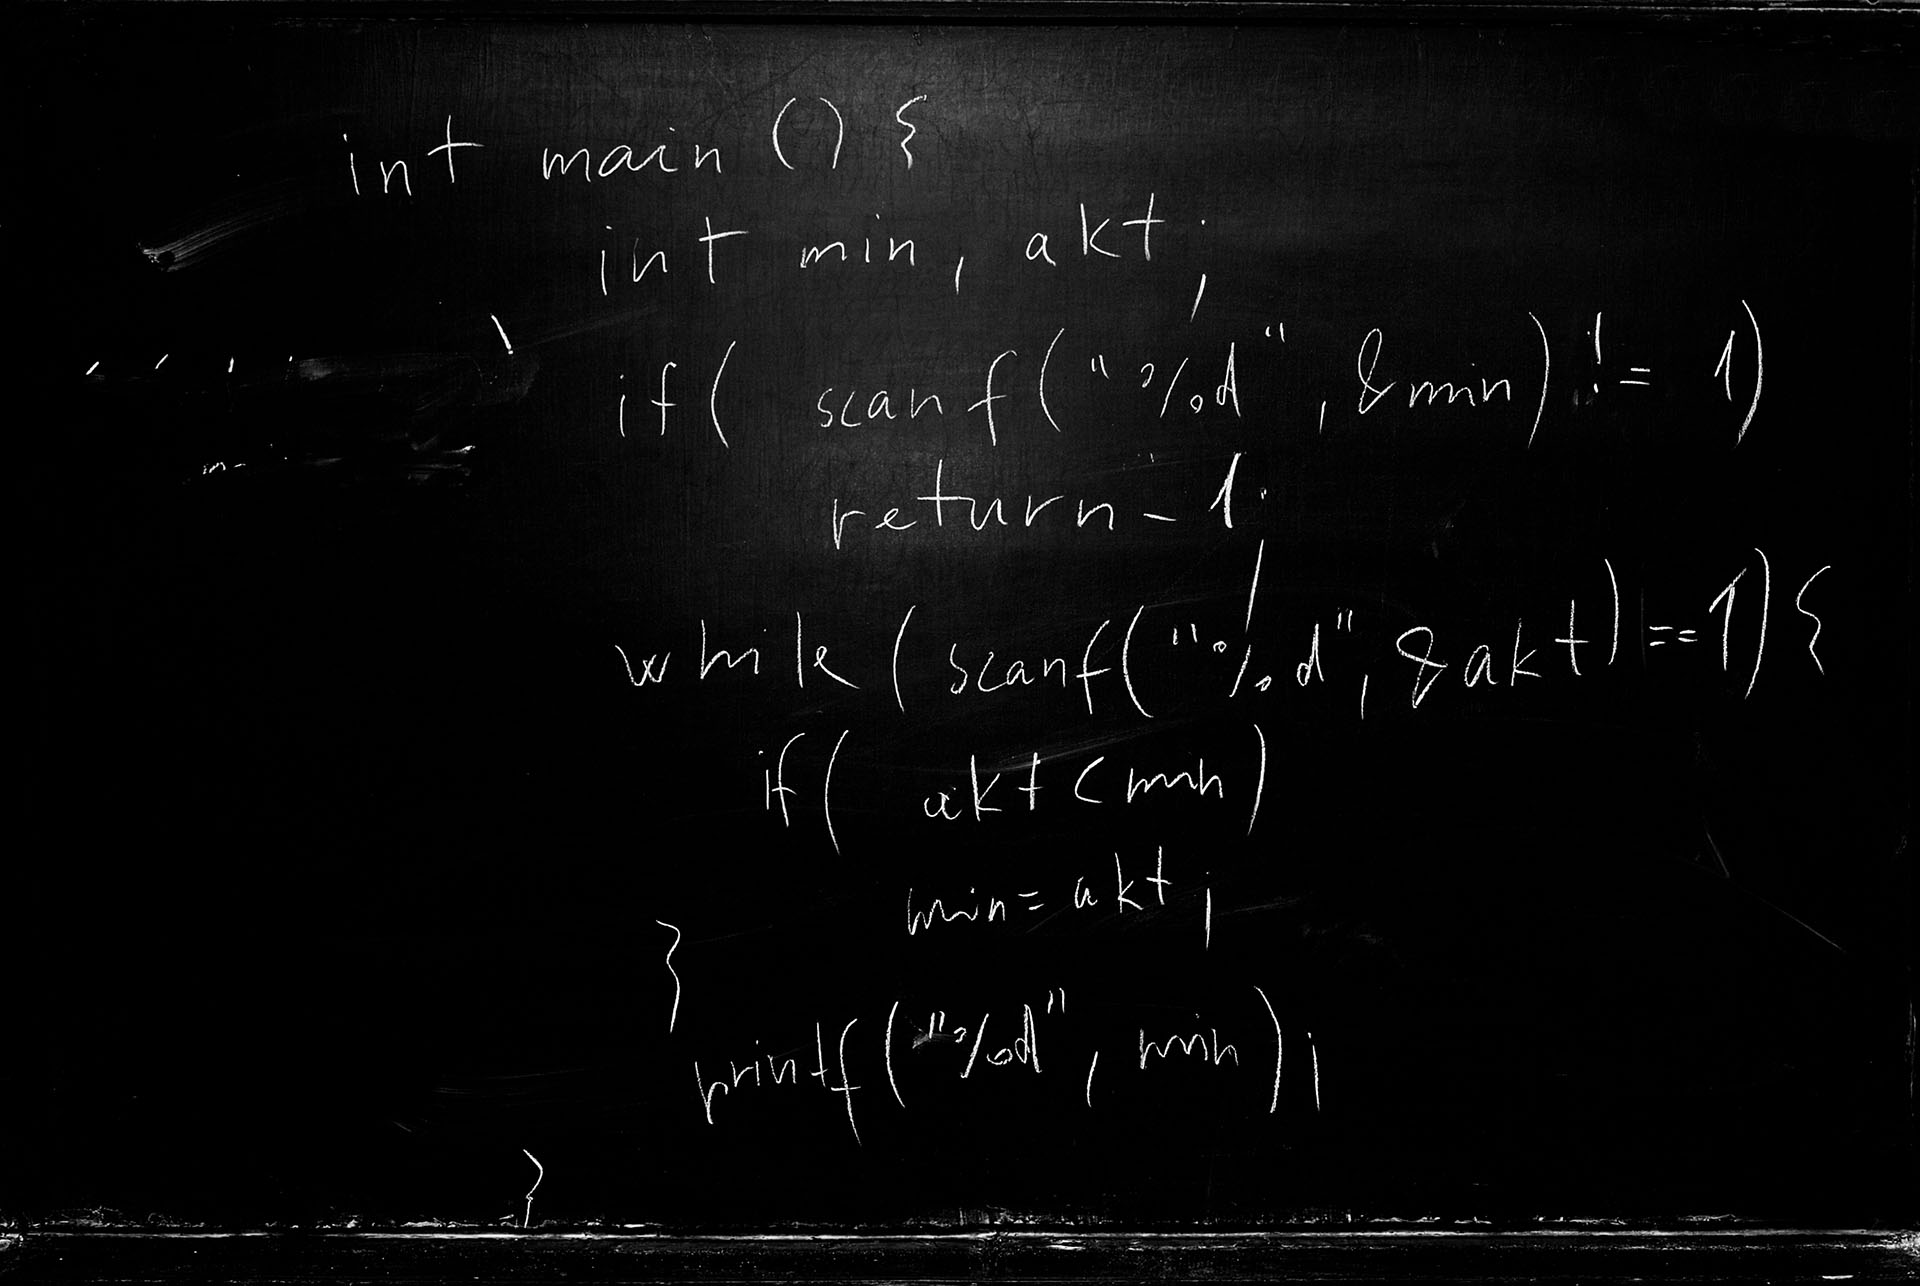 int main () {
int min, akt;
if( scanf("%d", &min) != 1)
return -1;
while (scanf("%d", &akt)==1) {
if( akt < min)
min = akt;
}
printf("%d", min);
}